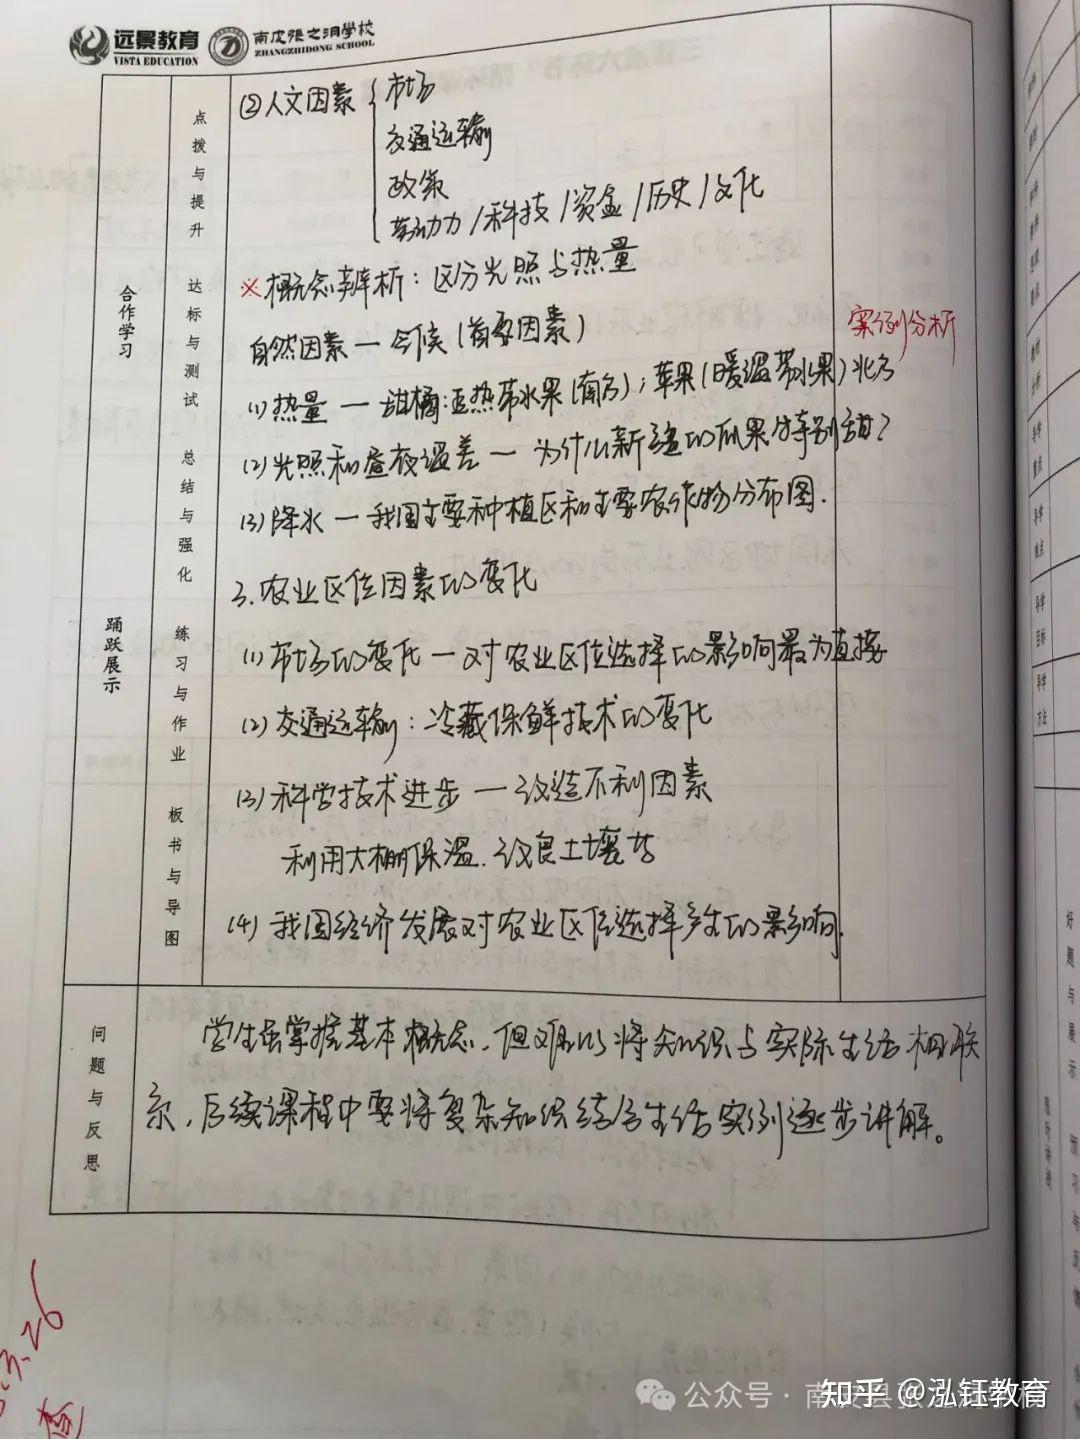 远景教育
VISTA EDUCATION
南皮张之洞学校
ZHANGZHIDONG SCHOOL
合作学习
踊跃展示
点拨与提升
达标与测试
总结与强化
练习与作业
板书与导图
②人文因素 { 市场
交通运输
政策
劳动力/科技/资金/历史/文化
※概念辨析：区分光照与热量
自然因素—气候(首要因素)
案例分析
(1)热量—甜橘:亚热带水果(南方)；苹果(暖温带水果)北方
(2)光照和昼夜温差—为什么新疆的瓜果特别甜？
(3)降水—我国主要种植区和主要农作物分布图.
3.农业区位因素的变化
(1)市场的变化—对农业区位选择的影响最为直接
(2)交通运输：冷藏保鲜技术的变化
(3)科学技术进步—改造不利因素
利用大棚保温.改良土壤等
(4)我国经济发展对农业区位选择产生的影响.
问题与反思
学生虽掌握基本概念,但难以将知识与实际生活相联
系,后续课程中要将复杂知识结合生活实例逐步讲解。
3.26
查
好题与展示
知乎 @泓钰教育
公众号·南皮县张之洞学校